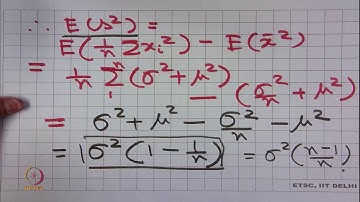 ∴ E(s²) =
E(1/n Σxᵢ²) − E(x̄²)
= 1/n Σ₁ⁿ(σ²+μ²) − (σ²/n + μ²)
= σ² + μ² − σ²/n − μ²
= σ²(1 − 1/n) = σ²((n−1)/n).
ETSC, IIT DELHI